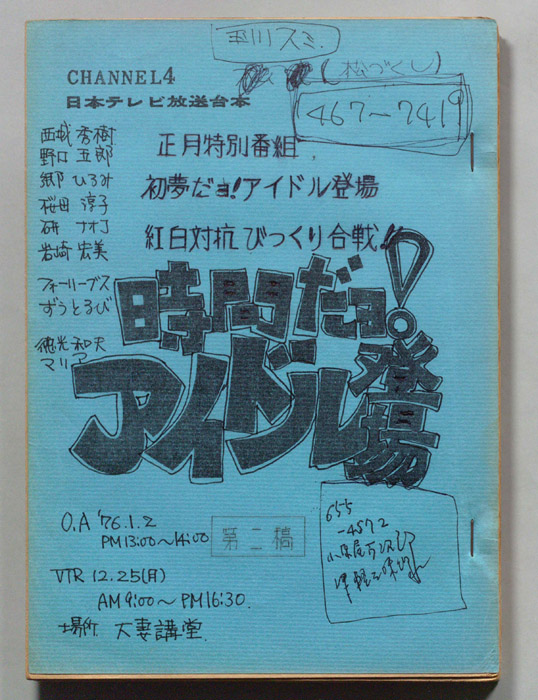 CHANNEL4
日本テレビ放送台本
(松づくし)
467-7419
西城 秀樹
野口 五郎
郷 ひろみ
桜田 淳子
研 ナオコ
岩崎 宏美
フォーリーブス
ずうとるび
徳光 和夫
マリア
正月特別番組
初夢だョ!アイドル登場
紅白対抗びっくり合戦!!
時間だョ!
アイドル登場
O.A '76.1.2
PM13:00~14:00
第二稿
VTR 12.25(月)
AM9:00~PM16:30.
場所 大妻講堂.
655
-4572